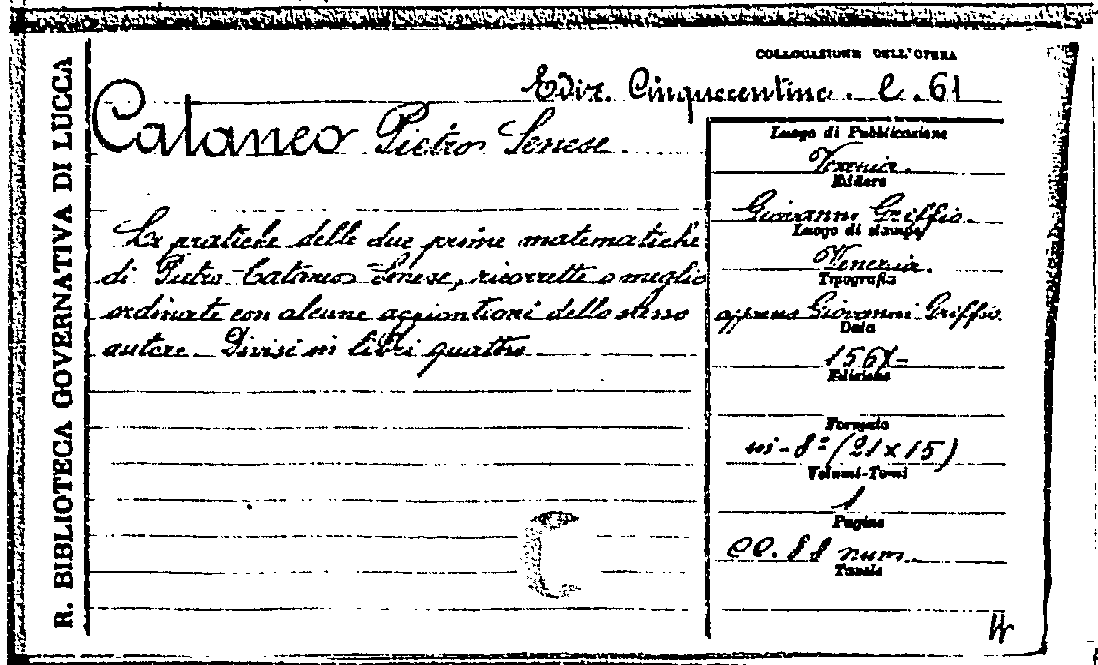 R. BIBLIOTECA GOVERNATIVA DI LUCCA
COLLOCAZIONE DELL'OPERA
Ediz. Cinquecentine. C. 61
Cataneo Pietro Senese.
Le pratiche delle due prime matematiche
di Pietro Cataneo Senese, ricorrette e meglio
ordinate con alcune aggiontioni dello stesso
autore. Divisi in libri quattro
Luogo di Pubblicazione
Venezia.
Editore
Giovanni Griffio.
Luogo di stampa
Venezia.
Tipografia
appresso Giovanni Griffio.
Data
Edizione
Formato
in-8º (21x15)
Volumi-Tomi
1
Pagine
cc. 88 num.
Tavole
C